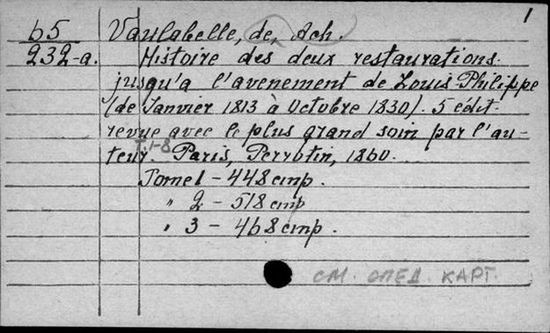 1
65 Vaulabelle, de, Ach.
232-a. Histoire des deux restaurations
jusqu'a l'avenement de Louis-Philippe
(de Janvier 1813 à Octobre 1830). 5 édit.
revue avec le plus grand soin par l'au-
teur. T.1-8 Paris, Perrotin, 1860.
Tome 1 - 448 стр.
" 2 - 518 стр
" 3 - 468 стр.
СМ. СЛЕД. КАРТ.